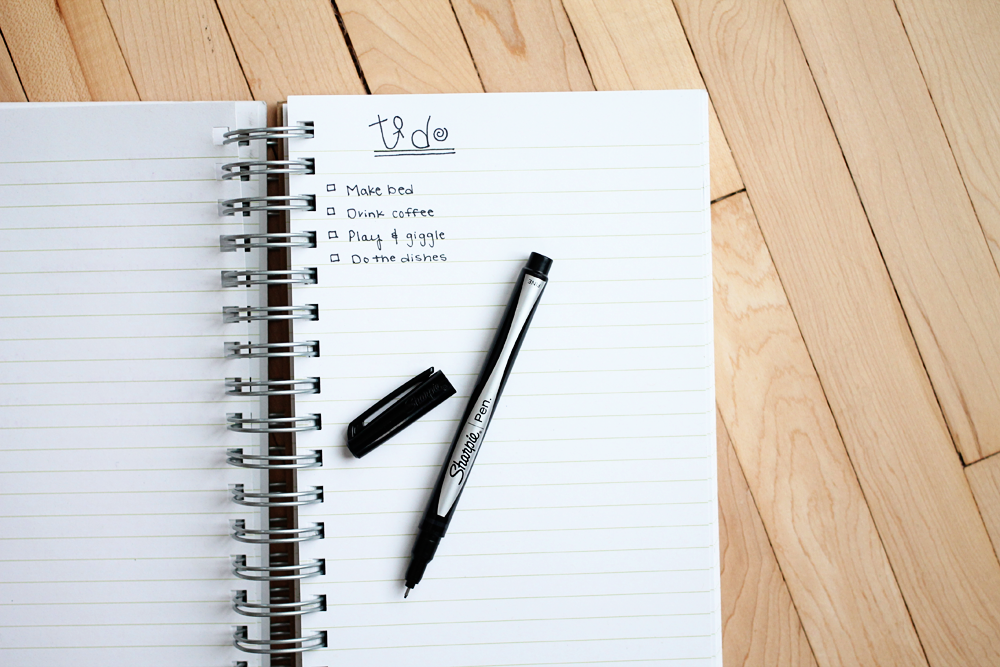 to do
☐ Make bed
☐ Drink coffee
☐ Play & giggle
☐ Do the dishes
Sharpie. Pen.